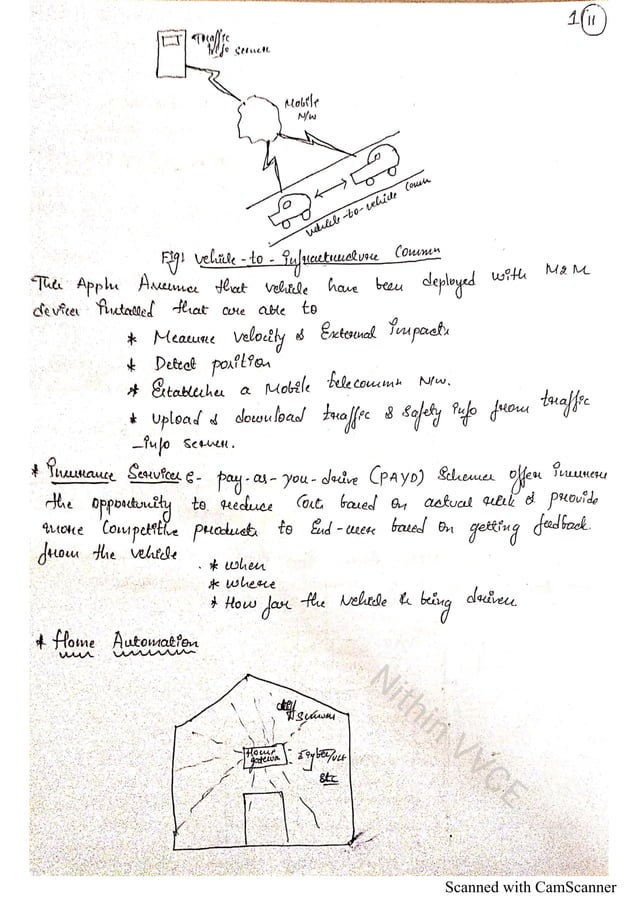 1 (ii)
Traffic
Info server
Mobile
N/w
vehicle-to-vehicle Comm
Fig: Vehicle-to-Infrastructure Commn
The Appln Assumes that vehicle have been deployed with M2M
devices Installed that are able to
* Measure Velocity & External Impacts
* Detect position
* Establishes a Mobile telecommn N/w.
* Upload & download traffic & Safety info from traffic
-Info server.
* Insurance Services :- pay-as-you-drive (PAYD) Schemes offer Insurers
the opportunity to reduce Costs based on actual risk & provide
more Competitive products to End-users based on getting feedback
from the vehicle
* when
* where
* How far the vehicle is being driven
* Home Automation
Home
gateway
etc
Nithin VVCE
Scanned with CamScanner